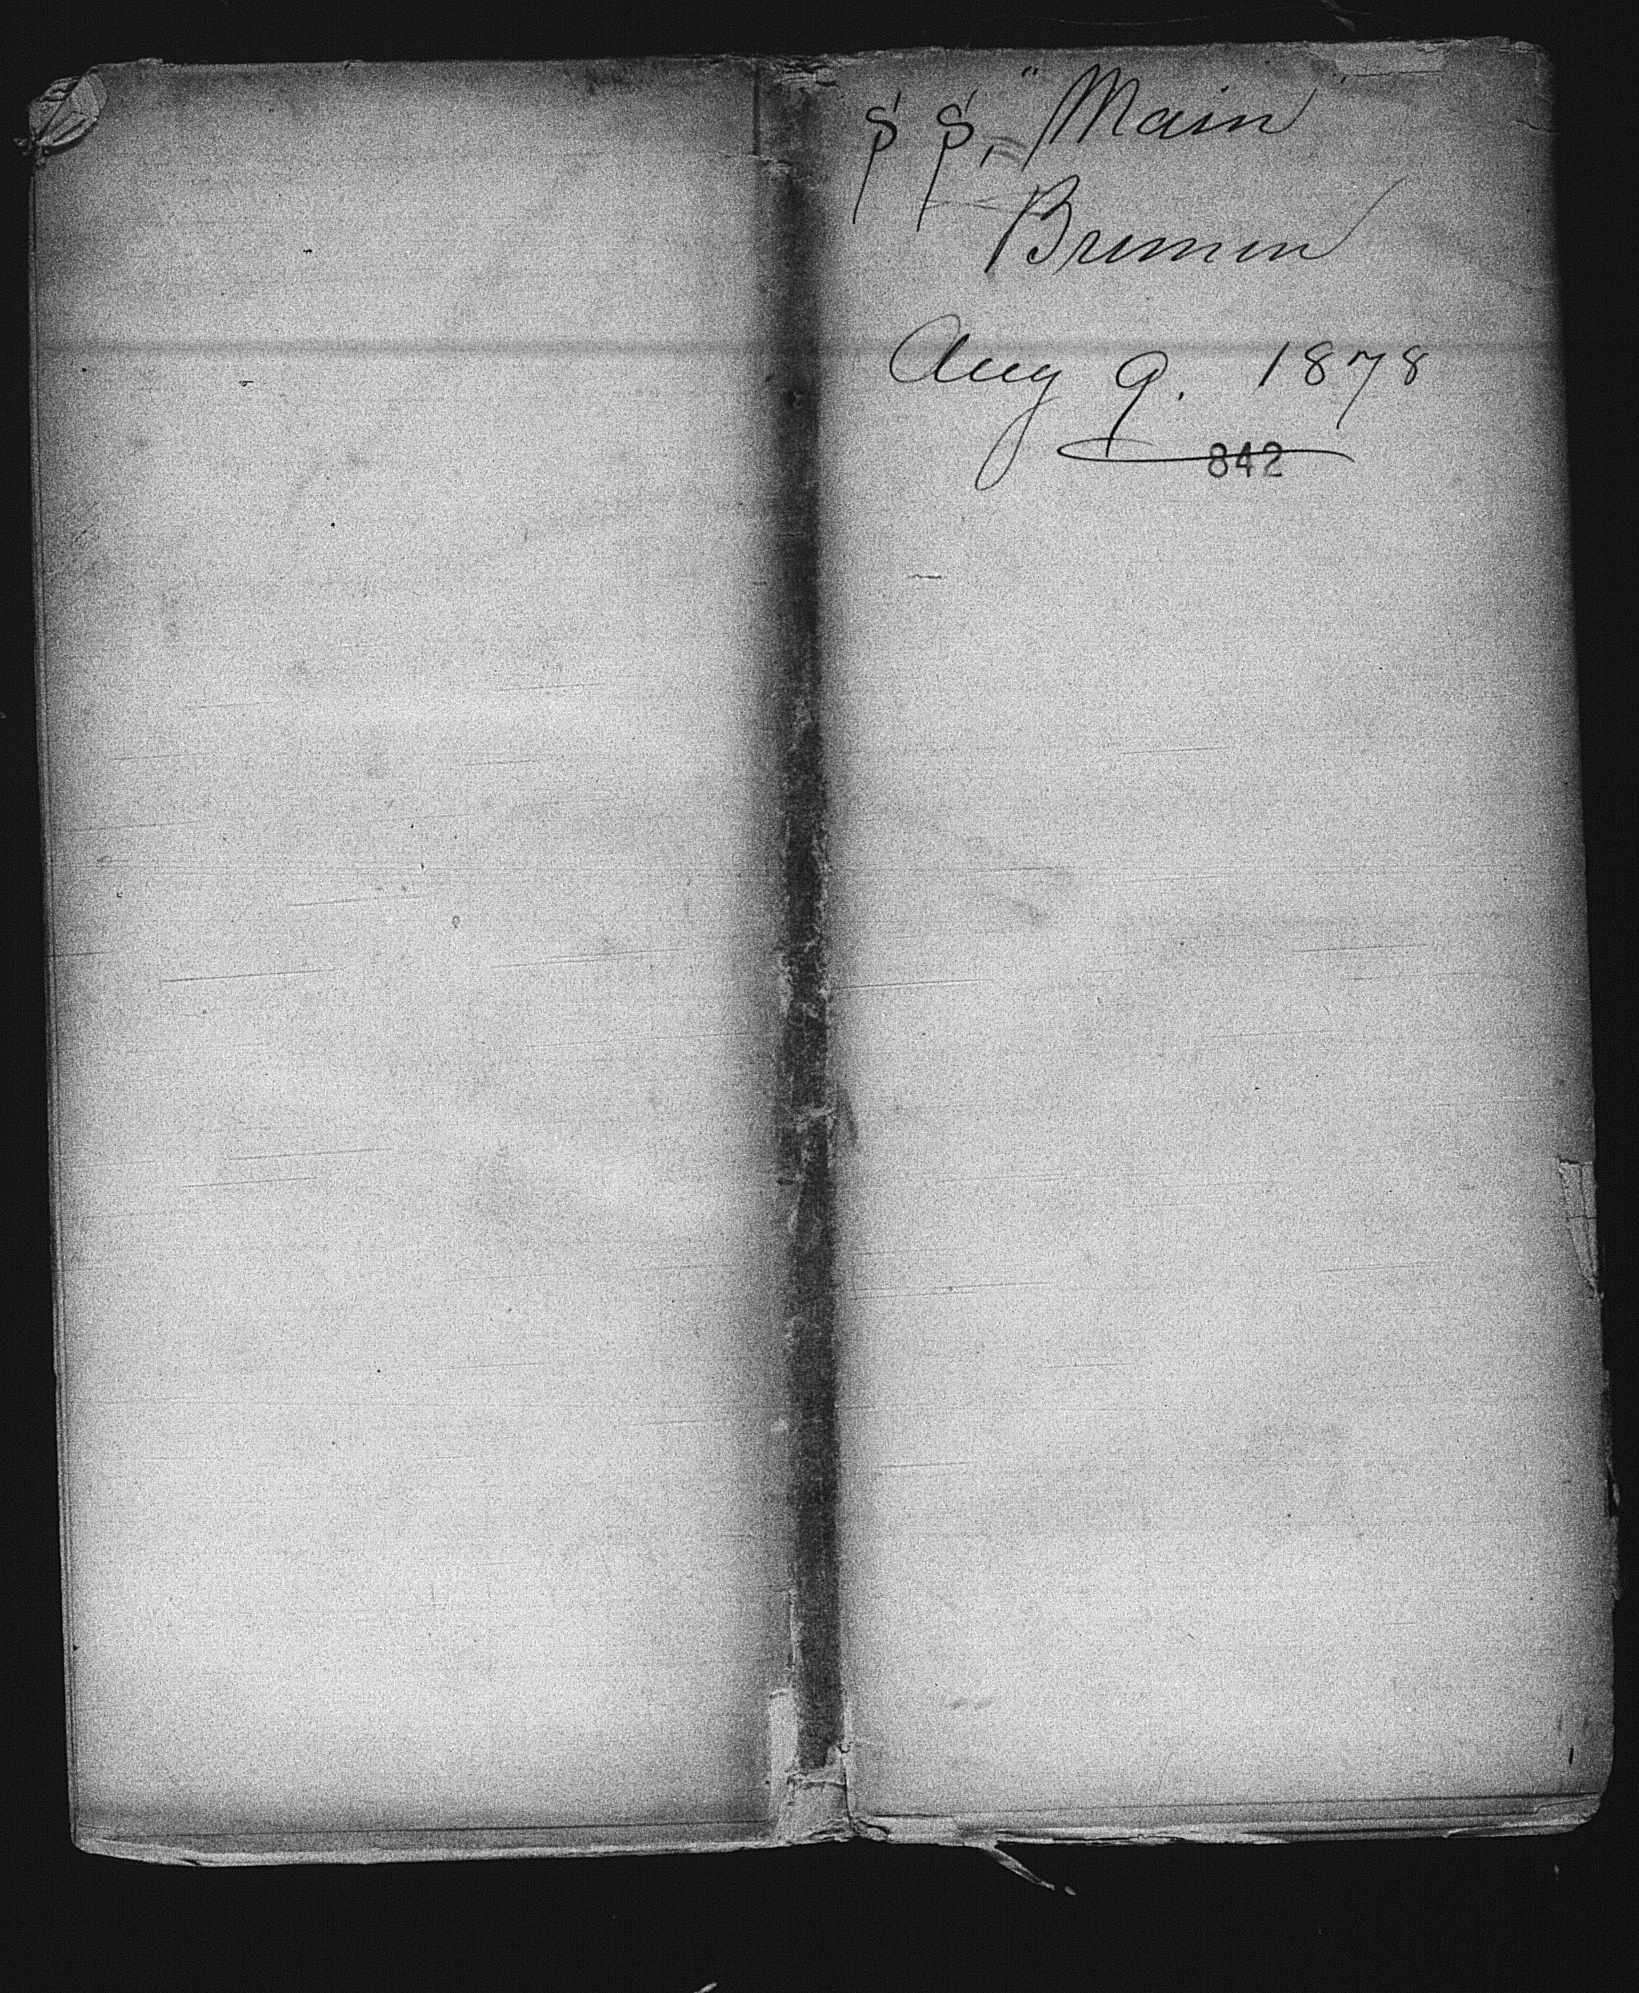 SS, "Main"
Bremen
Aug 9. 1878
842